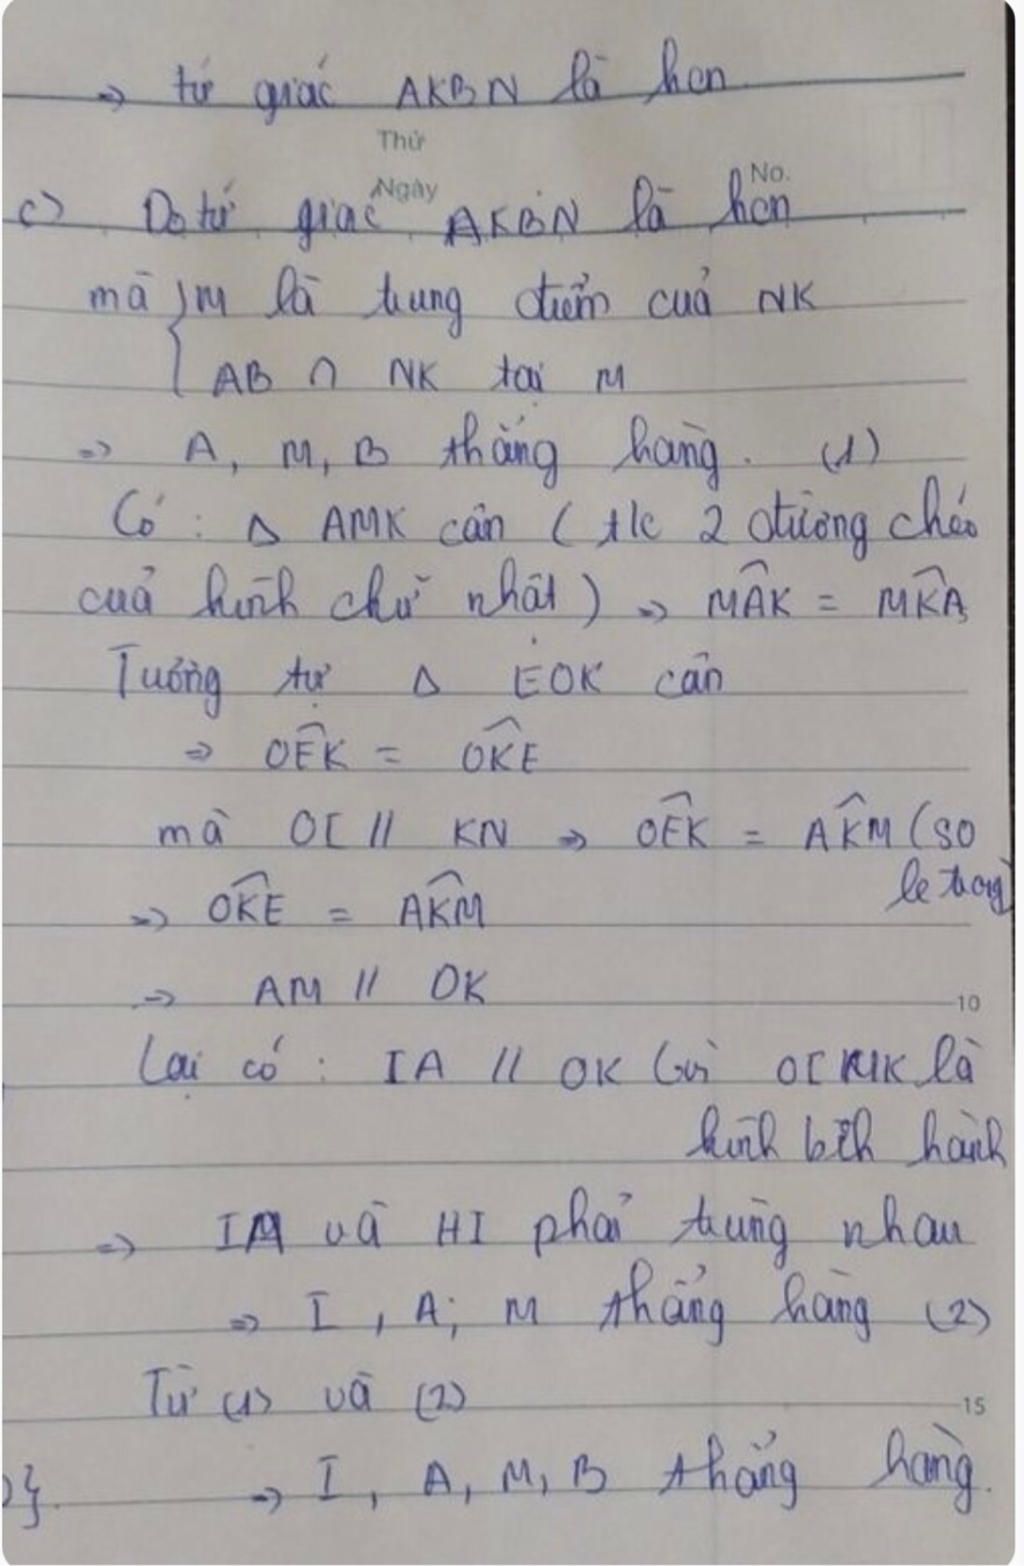 => tứ giác AKBN là hcn
Thứ
Ngày
No.
c) Do tứ giác AKBN là hcn
mà { M là trung điểm của NK
AB ∩ NK tại M
=> A, M, B thẳng hàng. (1)
Có : Δ AMK cân ( t/c 2 đường chéo
của hình chữ nhật ) => MÂK = MK̂A
Tương tự Δ EOK cân
=> OÊK = OK̂E
mà OI // KN => OÊK = AK̂M (so
le trong)
=> OK̂E = AK̂M
=> AM // OK
10
Lại có : IA // OK (vì OIMK là
hình bình hành
=> IM và HI phải trùng nhau
=> I, A; M thẳng hàng (2)
Từ (1) và (2)
15
=> I, A, M, B thẳng hàng.